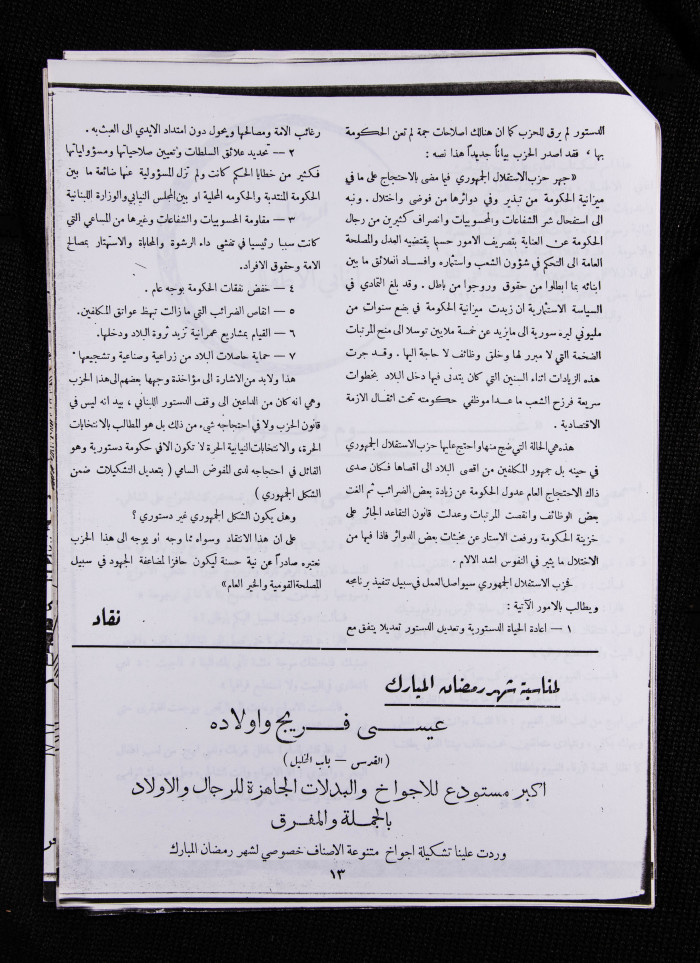 الدستور لم يرق للحزب كما ان هنالك اصلاحات جمة لم تعن الحكومة
بها ، فقد اصدر الحزب بياناً جديداً هذا نصه :
«جهر حزب الاستقلال الجمهوري فيما مضى بالاحتجاج على ما في
ميزانية الحكومة من تبذير وفي دوائرها من فوضى واختلال . ونبه
الى استفحال شر الشفاعات والمحسوبيات وانصراف كثيرين من رجال
الحكومة عن العناية بتصريف الامور حسبما يقتضيه العدل والمصلحة
العامة الى التحكم في شؤون الشعب واستثماره وافساد العلائق ما بين
ابنائه بما ابطلوا من حقوق وروجوا من باطل . وقد بلغ التمادي في
السياسة الاستثمارية ان زيدت ميزانية الحكومة في بضع سنوات من
مليوني ليره سورية الى ما يزيد عن خمسة ملايين توسلا الى منح المرتبات
الضخمة التي لا مبرر لها وخلق وظائف لا حاجة اليها . وقد جرت
هذه الزيادات اثناء السنين التي كان يتدنى فيها دخل البلاد بخطوات
سريعة فرزح الشعب ما عدا موظفي حكومته تحت اثقال الازمة
الاقتصادية .
هذه هي الحالة التي ضج منها واحتج عليها حزب الاستقلال الجمهوري
في حينه بل جمهور المكلفين من اقصى البلاد الى اقصاها فكان صدى
ذاك الاحتجاج العام عدول الحكومة عن زيادة بعض الضرائب ثم الغت
بعض الوظائف وانقصت المرتبات وعدلت قانون التقاعد الجائر على
خزينة الحكومة ورفعت الاستار عن مخبئات بعض الدوائر فاذا فيها من
الاختلال ما يثير في النفوس اشد الالام .
فحزب الاستقلال الجمهوري سيواصل العمل في سبيل تنفيذ برنامجه
ويطالب بالامور الآتية :
١ – اعادة الحياة الدستورية وتعديل الدستور تعديلا يتفق مع
رغائب الامة ومصالحها ويحول دون امتداد الايدي الى العبث به .
٢ – تحديد علائق السلطات وتعيين صلاحياتها ومسؤولياتها
فكثير من خطايا الحكم كانت ولم تزل المسؤولية عنها ضائعة ما بين
الحكومة المنتدبة والحكومه المحلية او بين المجلس النيابي والوزارة اللبنانية
٣ – مقاومة المحسوبيات والشفاعات وغيرها من المساعي التي
كانت سببا رئيسيا في تفشي داء الرشوة والمحاباة والاستهتار بمصالح
الامة وحقوق الافراد.
٤ – خفض نفقات الحكومة بوجه عام .
٥ – انقاص الضرائب التي ما زالت تبهظ عواتق المكلفين.
٦ – القيام بمشاريع عمرانية تزيد ثروة البلاد ودخلها.
٧ – حماية حاصلات البلاد من زراعية وصناعية وتشجيعها ·
هذا ولابد من الاشارة الى مؤاخذة وجهها بعضهم الى هذا الحزب
وهي انه كان من الداعين الى وقف الدستور اللبناني ، بيد انه ليس في
قانون الحزب ولا في احتجاجه شيء من ذلك بل هو المطالب بالانتخابات
الحرة، والانتخابات النيابية الحرة لا تكون الا في حكومة دستورية وهو
القائل في احتجاجه لدى المفوض السامي ( بتعديل التشكيلات ضمن
الشكل الجمهوري )
وهل يكون الشكل الجمهوري غير دستوري ؟
على ان هذا الانتقاد وسواه مما وجه أو يوجه الى هذا الحزب
نعتبره صادراً عن نية حسنة ليكون حافزا لمضاعفة الجهود في سبيل
المصلحة القومية والخير العام»
نقاد
لمناسبة شهر رمضان المبارك
عيسى فريج واولاده
( القدس – باب الخليل )
اكبر مستودع للاجواخ والبدلات الجاهزة للرجال والاولاد
بالجملة والمفرق
وردت علينا تشكيلة اجواخ متنوعة الاصناف خصوصي لشهر رمضان المبارك
١٣